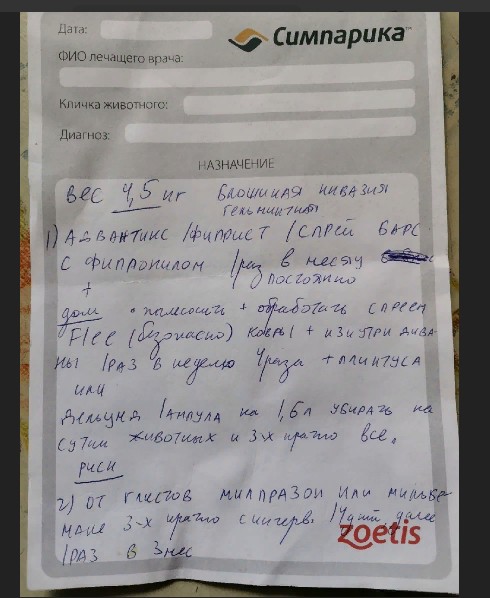 Дата:
Симпарика™
ФИО лечащего врача:
Кличка животного:
Диагноз:
НАЗНАЧЕНИЕ
Вес 4,5 кг Блошиная инвазия
гельминтная
1) Адвантикс / Фиприст / Спрей Барс
с фипронилом 1 раз в месяц
постоянно
+
дом • пылесосить + обработать спреем
Flee (безопасно) ковры + изнутри дива
ны 1 раз в неделю 4 раза + плинтуса
или
Дельцид 1 ампула на 1,6 л убирать на
сутки животных и 3-х кратно все.
риски
2) От глистов Милпразон или Мильбе
макс 3-х кратно с интерв. 14 дней, далее
1 раз в 3 мес
zoetis